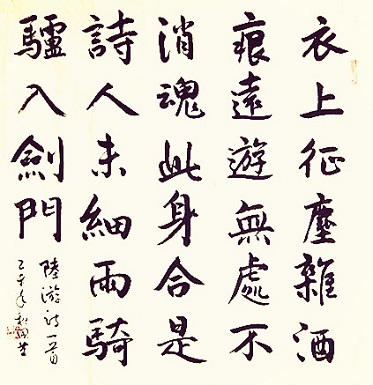 衣上征塵雜酒
痕遠遊無處不
消魂此身合是
詩人未細雨騎
驢入劍門
陸游詩一首